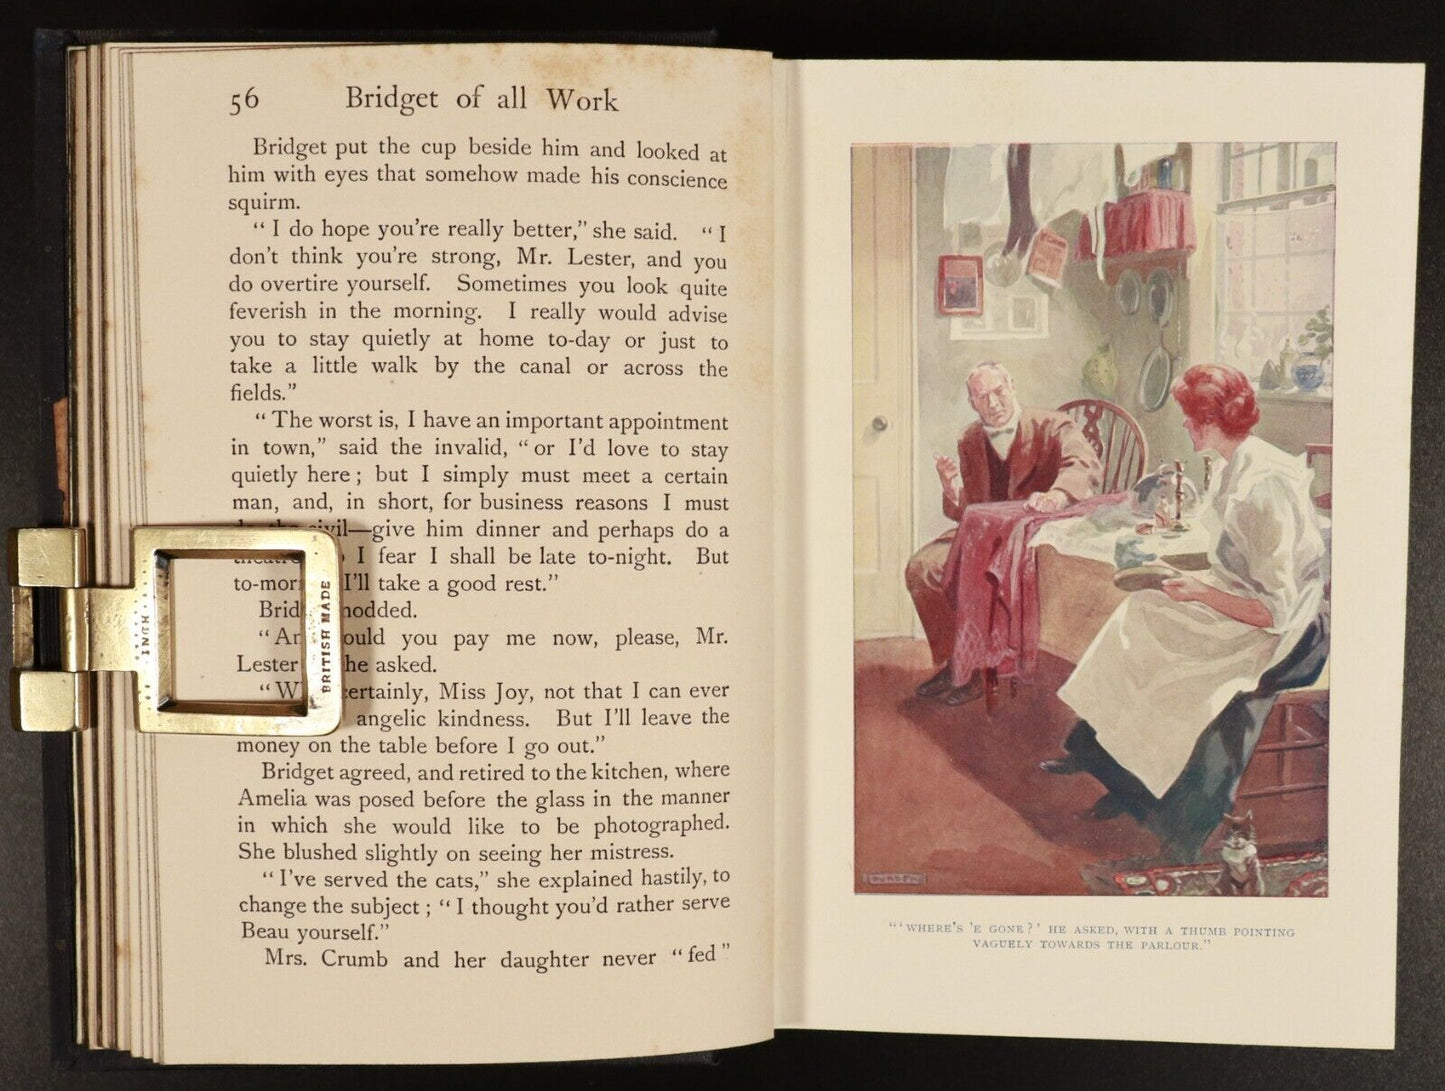 56 Bridget of all Work
Bridget put the cup beside him and looked at
him with eyes that somehow made his conscience
squirm.
“ I do hope you’re really better,” she said. “ I
don’t think you’re strong, Mr. Lester, and you
do overtire yourself. Sometimes you look quite
feverish in the morning. I really would advise
you to stay quietly at home to-day or just to
take a little walk by the canal or across the
fields.”
“ The worst is, I have an important appointment
in town,” said the invalid, “ or I’d love to stay
quietly here ; but I simply must meet a certain
man, and, in short, for business reasons I must
civil—give him dinner and perhaps do a
I fear I shall be late to-night. But
I’ll take a good rest.”
nodded.
you pay me now, please, Mr.
Lester he asked.
certainly, Miss Joy, not that I can ever
angelic kindness. But I’ll leave the
money on the table before I go out.”
Bridget agreed, and retired to the kitchen, where
Amelia was posed before the glass in the manner
in which she would like to be photographed.
She blushed slightly on seeing her mistress.
“ I’ve served the cats,” she explained hastily, to
change the subject ; “ I thought you’d rather serve
Beau yourself.”
Mrs. Crumb and her daughter never “ fed ”
INCH
BRITISH MADE
“ ‘ WHERE’S ’E GONE ? ’ HE ASKED, WITH A THUMB POINTING
VAGUELY TOWARDS THE PARLOUR.”